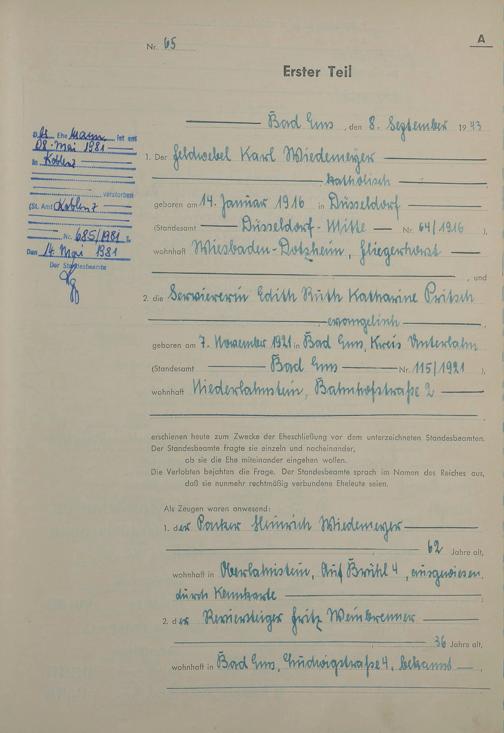 Nr. 65
A
Erster Teil
Bad Ems, den 8. September 1943
1. Der Feldwebel Karl Wiedemeyer
katholisch
geboren am 14. Januar 1916 in Düsseldorf
(Standesamt Düsseldorf-Mitte Nr. 64/1916),
wohnhaft Wiesbaden-Dotzheim, Fliegerhorst
, und
2. die Serviererin Edith Ruth Katharine Pritsch
evangelisch
geboren am 7. November 1921 in Bad Ems, Kreis Unterlahn
(Standesamt Bad Ems Nr. 115/1921),
wohnhaft Niederlahnstein, Bahnhofstraße 2
erschienen heute zum Zwecke der Eheschließung vor dem unterzeichneten Standesbeamten.
Der Standesbeamte fragte sie einzeln und nacheinander,
ob sie die Ehe miteinander eingehen wollen.
Die Verlobten bejahten die Frage. Der Standesbeamte sprach im Namen des Reiches aus,
daß sie nunmehr rechtmäßig verbundene Eheleute seien.
Als Zeugen waren anwesend:
1. der Heinrich Wiedemeyer
62 Jahre alt,
wohnhaft in Oberlahnstein, Auf Brühl 4, ausgewiesen
durch Kennkarte
2. der Reviersteiger Fritz Weinbrenner
36 Jahre alt,
wohnhaft in Bad Ems, Ludwigstraße 4, bekannt
Ehe Mann ist am
08. Mai 1981
in Koblenz
verstorben
(St. Amt Koblenz
Nr. 685/1981).
Den 14. Mai 1981
Der Standesbeamte